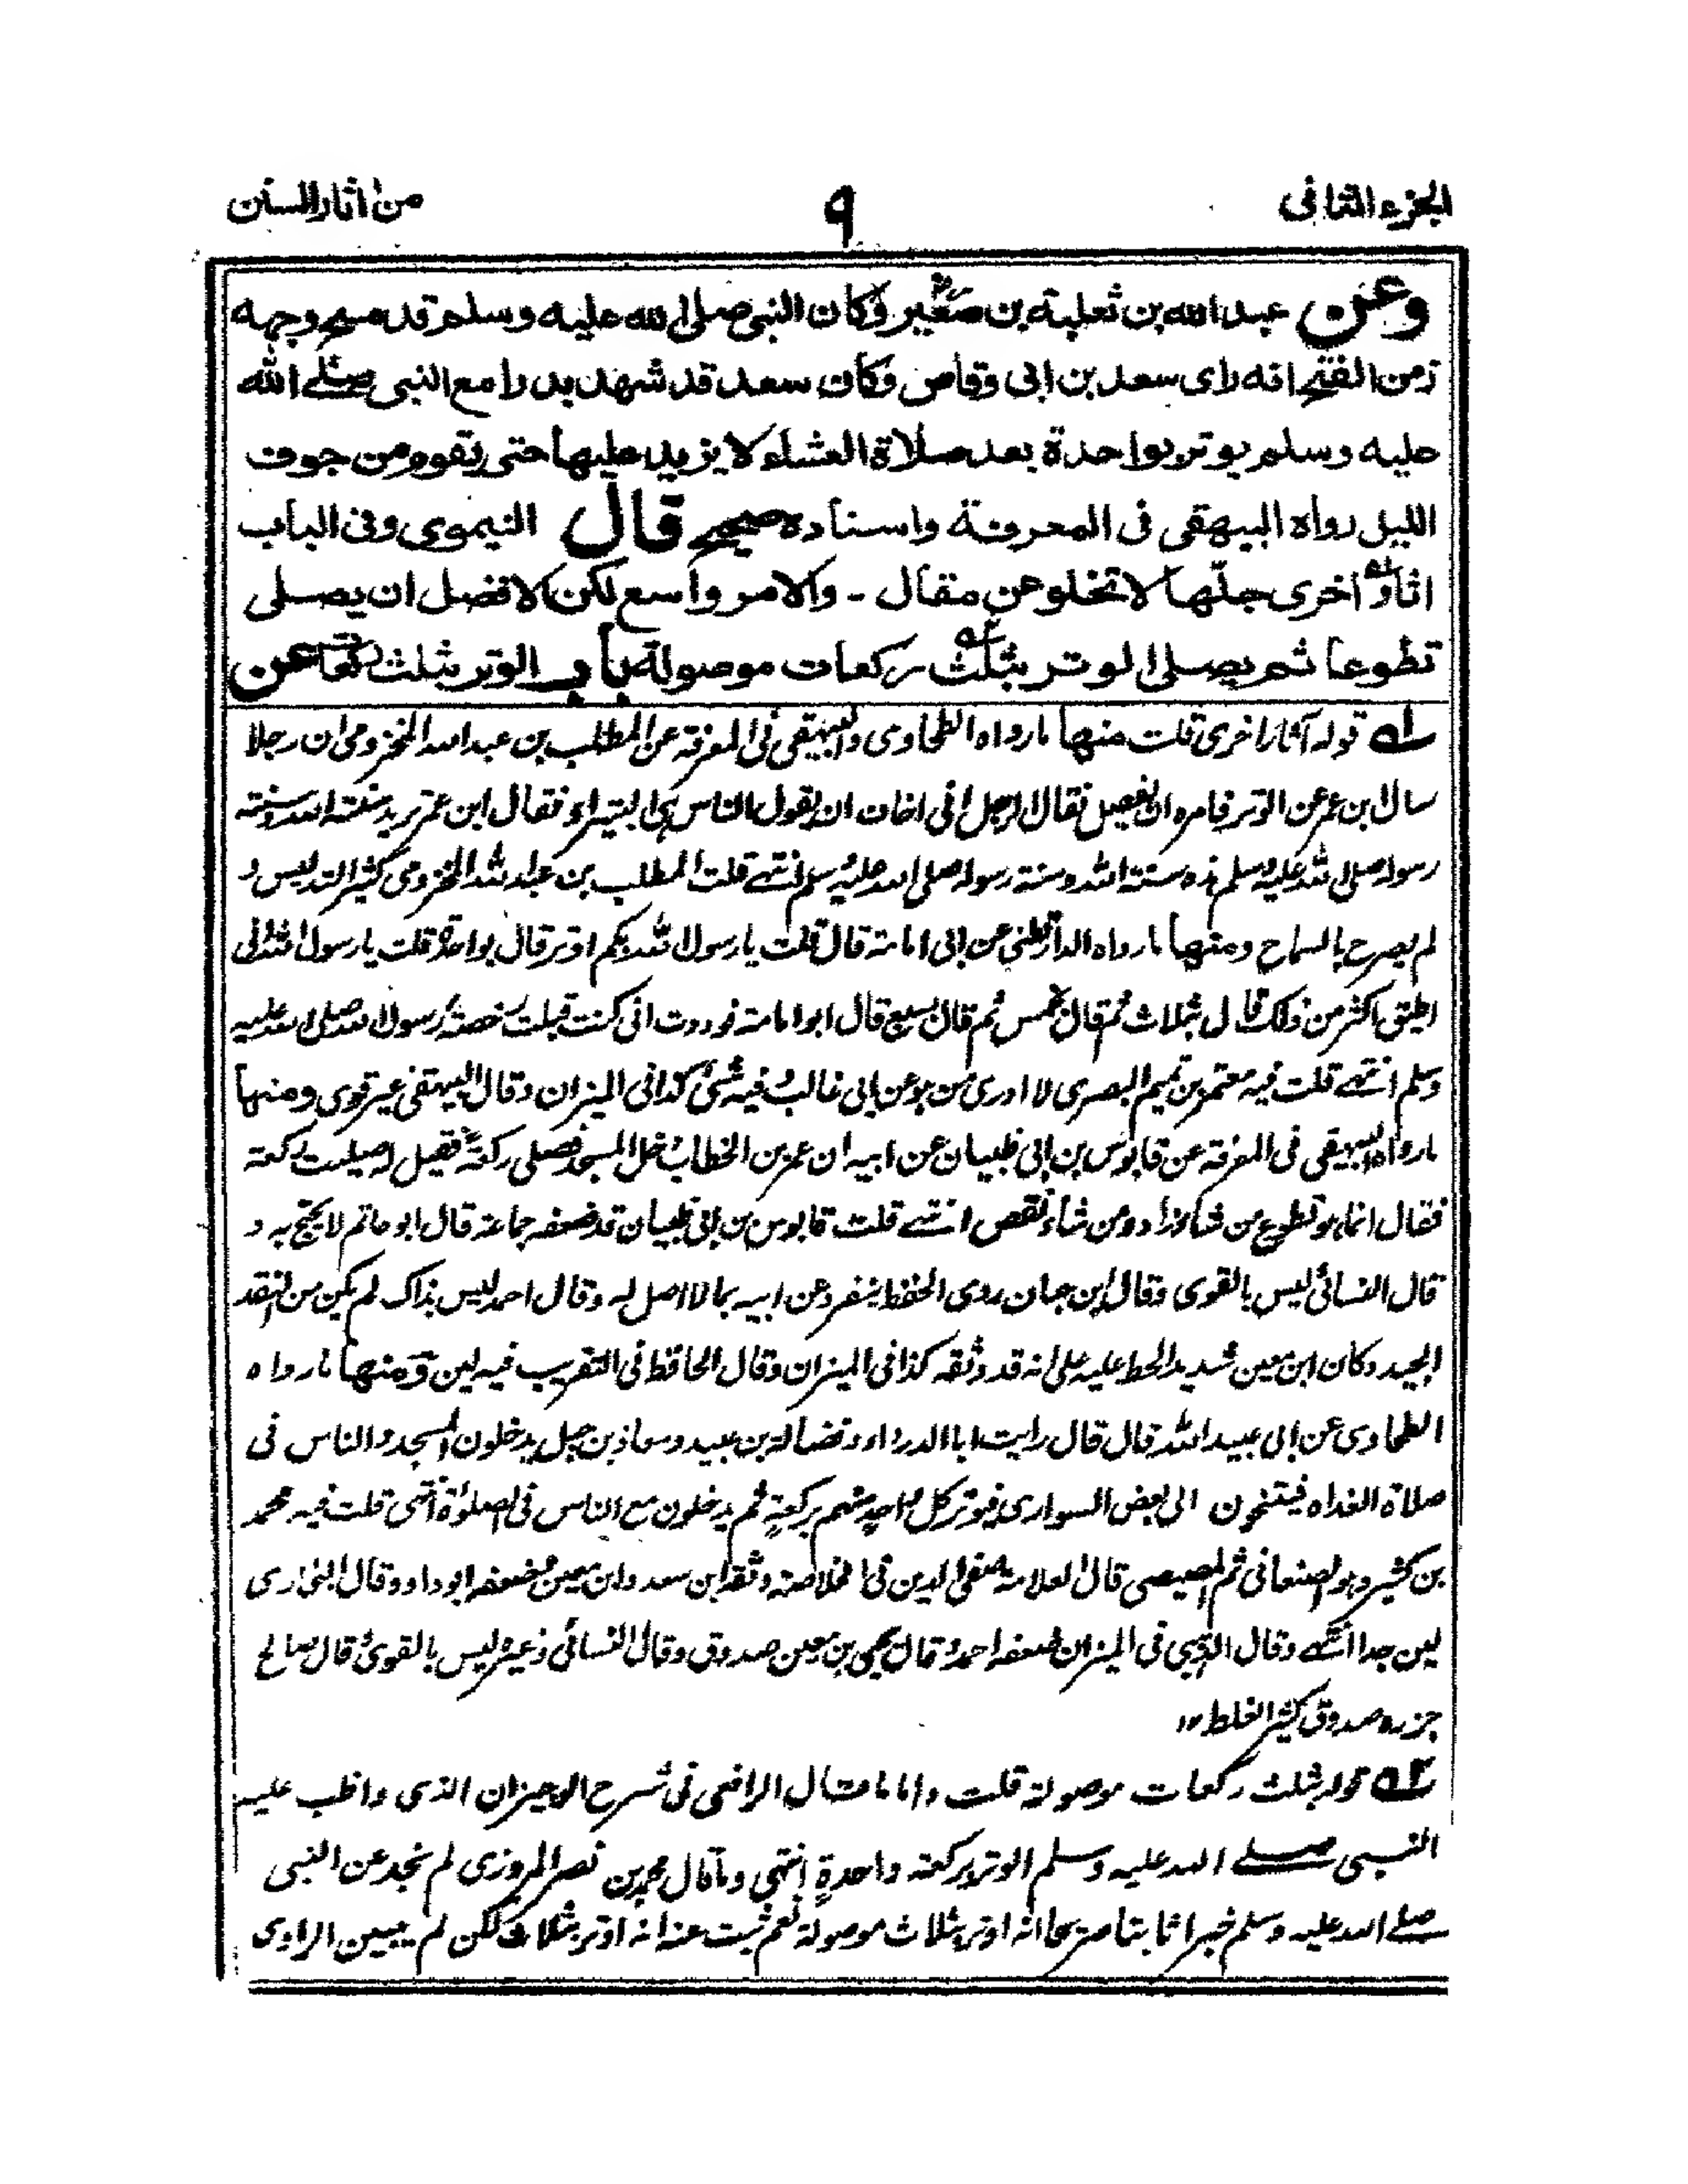 الجزء الثاني
٩
من اثار السنن
وعن عبد الله بن ثعلبة بن صغير وكان النبي صلى الله عليه وسلم قد مسح وجهه
زمن الفتح انه راى سعد بن ابى وقاص وكان سعد قد شهد بدرا مع النبى صلے الله
عليه وسلم يوتر بواحدة بعد صلاة العشاء لا يزيد عليها حتى يقوم من جوف
الليل رواه البيهقى فى المعرفة واسناده صحيح قال النيموى وفى الباب
اثار اخرى جلّها لا تخلو عن مقال - والامر واسع لكن الافضل ان يصلى
تطوعا ثم يصلى الوتر بثلث ركعات موصولة باب الوتر بثلث ركعات عن
له قوله آثار اخرى قلت منها ما رواه الطحاوى والبيهقى فى المعرفة عن المطلب بن عبد الله المخزومى ان رجلا
سال ابن عمر عن الوتر فامره ان يفصل فقال الرجل انى اخاف ان يقول الناس هى البتيراء فقال ابن عمر تريد سنة الله وسنة
رسوله صلى الله عليه وسلم هذه سنة الله وسنة رسوله صلى الله عليه وسلم انتهے قلت المطلب بن عبد الله المخزومى كثير التدليس و
لم يصرح بالسماع ومنها ما رواه الدارقطنى عن ابى امامة قال قلت يا رسول الله بكم اوتر قال بواحدة قلت يا رسول الله انى
اطيق اكثر من ذلك قال بثلاث ثم قال بخمس ثم قال بسبع قال ابو امامة فوددت انى كنت قبلت رخصة رسول الله صلى الله عليه
وسلم انتهے قلت فيه معتمر بن تميم البصرى لا ادرى من هو عن ابى غالب وفيه شئ كذا فى الميزان وقال البيهقى غير قوى ومنها
ما رواه البيهقى فى المعرفة عن قابوس بن ابى ظبيان عن ابيه ان عمر بن الخطاب دخل المسجد فصلى ركعة فقيل له صليت ركعة
فقال انما هو تطوع من شاء زاد ومن شاء نقص انتهے قلت قابوس بن ابى ظبيان قد ضعفه جماعة قال ابو حاتم لا يحتج به و
قال النسائى ليس بالقوى وقال ابن حبان ردى الحفظ ينفرد عن ابيه بما لا اصل له وقال احمد ليس بذاك لم يكن من النقد
الجيد وكان ابن معين شديد الحط عليه على انه قد وثقه كذا فى الميزان وقال الحافظ فى التقريب فيه لين ومنها ما رواه
الطحاوى عن ابى عبيد الله قال قال رايت ابا الدرداء وفضالة بن عبيد ومعاذ بن جبل يدخلون المسجد والناس فى
صلاة الغداه فيتنحون الى بعض السوارى فيوتر كل واحد منهم بركعة ثم يدخلون مع الناس فى الصلوٰة انتهى قلت فيه محمد
بن كثير وهو الصنعانى ثم المصيصى قال العلامة صفى الدين فى الخلاصة وثقه ابن سعد وابن معين وضعفه ابو داود وقال البخارى
لين جدا انتهے وقال الذهبى فى الميزان ضعفه احمد وقال يحيى بن معين صدوق وقال النسائى وغيره ليس بالقوى وقال صالح
جزره صدوق كثير الغلط ١٢
٢ه قوله بثلث ركعات موصولة قلت واما ما قال الرافعى فى شرح الوجيز ان الذى واظب عليه
النبى صلے الله عليه وسلم الوتر بركعة واحدة انتهى وما قال محمد بن نصر المروزى لم نجد عن النبى
صلے الله عليه وسلم خبرا ثابتا صريحا انه اوتر بثلاث موصولة نعم ثبت عنه انه اوتر بثلاث لكن لم يبين الراوى